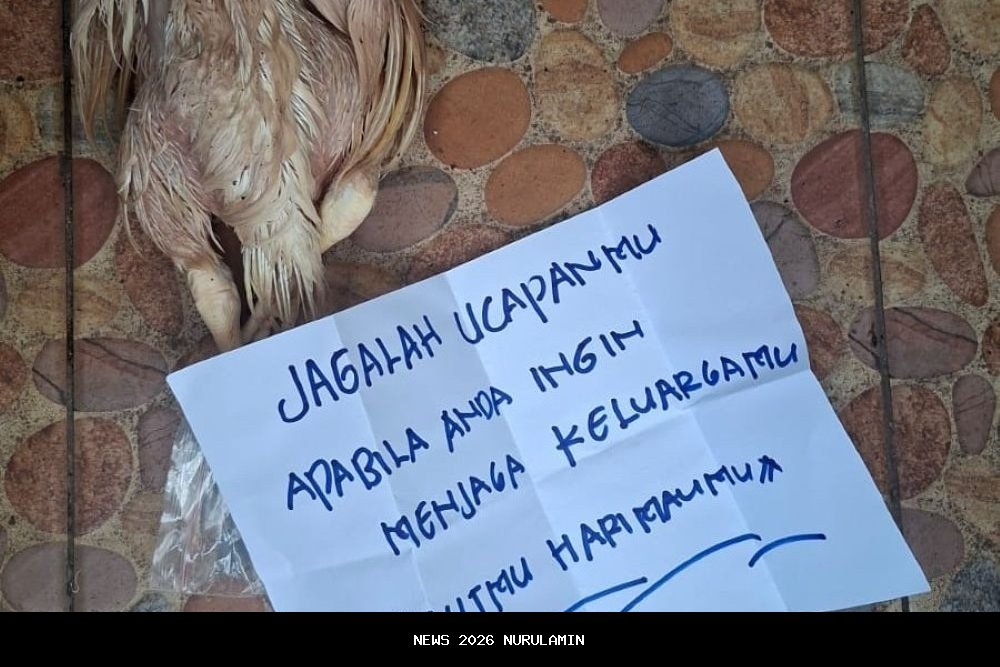 JAGALAH UCAPANMU
APABILA ANDA INGIN
MENJAGA KELUARGAMU
HARIMAUMU"
NEWS 2026 NURULAMIN